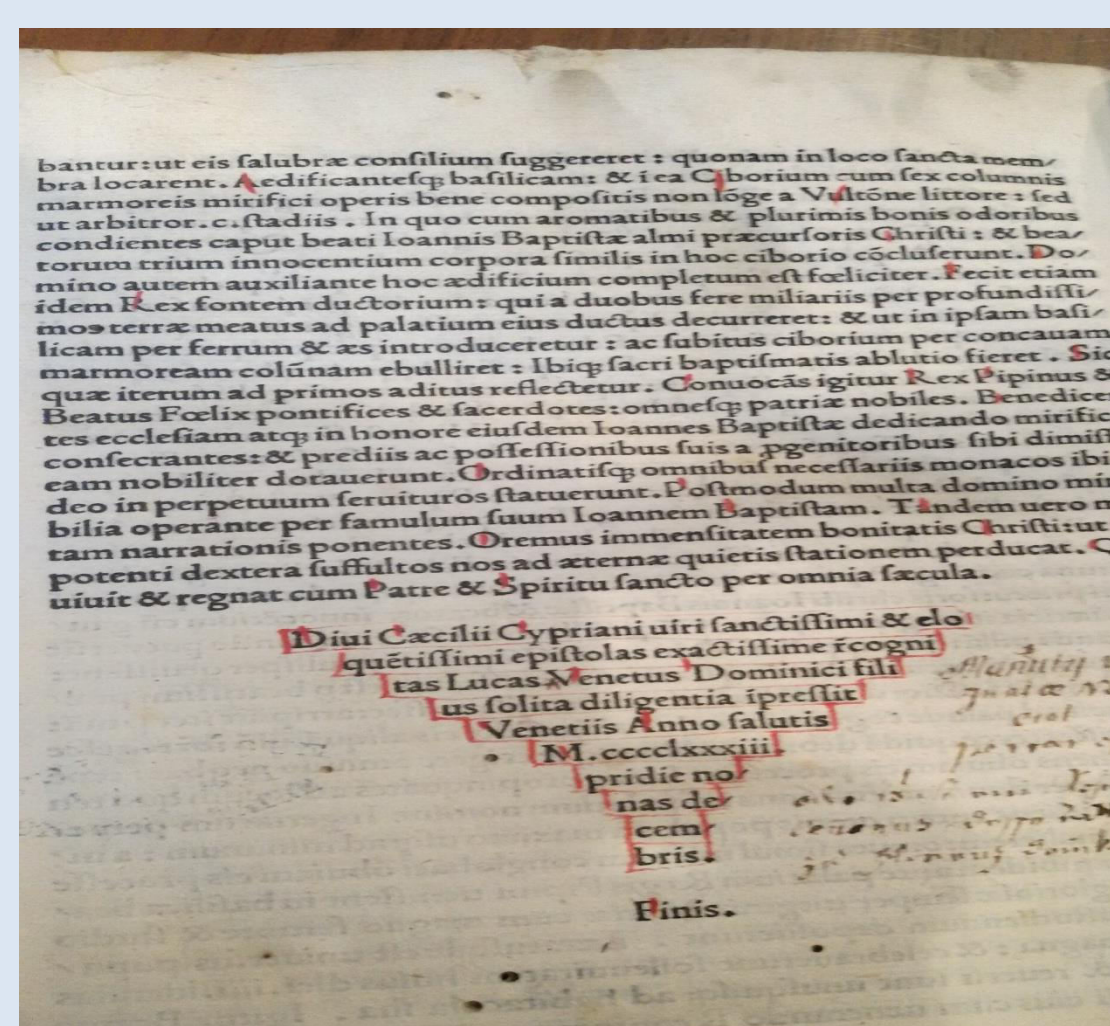 bantur:ut eis ſalubræ conſilium ſuggereret : quonam in loco ſancta mem/
bra locarent. Aedificanteſqꝫ baſilicam: & i ea Ciborium cum ſex columnis
marmoreis mirifici operis bene compoſitis non lōge a Vultōne littore : ſed
ut arbitror.c.ſtadiis . In quo cum aromatibus & plurimis bonis odoribus
condientes caput beati Ioannis Baptiſtæ almi præcurſoris Chriſti : & bea/
torum trium innocentium corpora ſimilis in hoc ciborio cōcluſerunt. Do/
mino autem auxiliante hoc ædificium completum eſt fœliciter. Fecit etiam
idem Rex fontem ductorium: qui a duobus fere miliariis per profundiſſi/
mos terræ meatus ad palatium eius ductus decurreret: & ut in ipſam baſi/
licam per ferrum & æs introduceretur : ac ſubitus ciborium per concauam
marmoream colūnam ebulliret : Ibiqꝫ ſacri baptiſmatis ablutio fieret . Sic
quæ iterum ad primos aditus reflectetur. Conuocās igitur Rex Pipinus &
Beatus Fœlix pontifices & ſacerdotes:omneſqꝫ patriæ nobiles. Benedicen
tes eccleſiam atqꝫ in honore eiuſdem Ioannes Baptiſtæ dedicando mirific
conſecrantes:& prediis ac poſſeſſionibus ſuis a ꝓgenitoribus ſibi dimiſſ
eam nobiliter dotauerunt. Ordinatiſqꝫ omnibuſ neceſſariis monacos ibi
deo in perpetuum ſeruituros ſtatuerunt. Poſtmodum multa domino mir
bilia operante per famulum ſuum Ioannem Baptiſtam. Tandem uero m
tam narrationis ponentes. Oremus immenſitatem bonitatis Chriſti:ut
potenti dextera ſuffultos nos ad æternæ quietis ſtationem perducat. Q
uiuit & regnat cum Patre & Spiritu ſancto per omnia ſæcula.
Diui Cæcilii Cypriani uiri ſanctiſſimi & elo
quētiſſimi epiſtolas exactiſſime r̄cogni
tas Lucas Venetus Dominici fili
us ſolita diligentia ipreſſit
Venetiis Anno ſalutis
M.cccclxxxiii.
pridie no
nas de
cem
bris.
Finis.